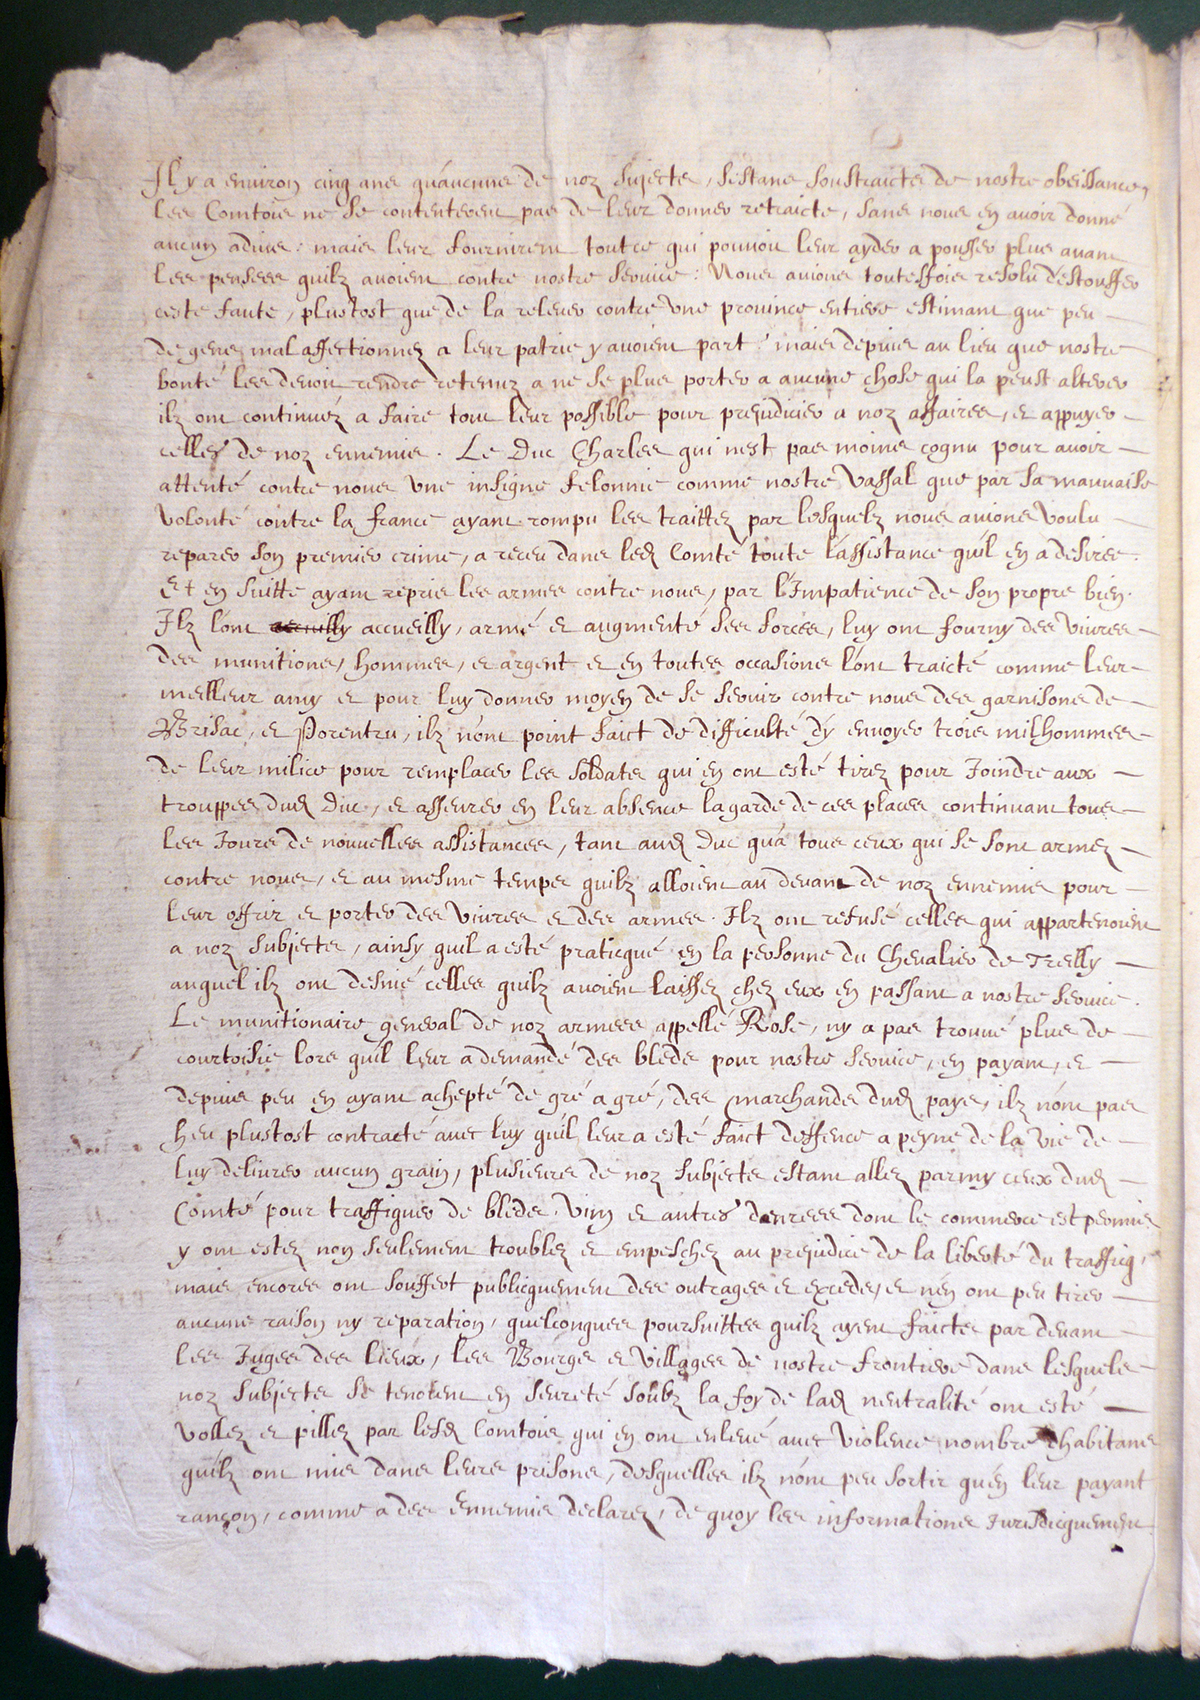 Il y a environ cinq ans qu'aucuns de noz sujects, s'estans soustraicts de nostre obeissance,
les Comtois ne se contenterent pas de leur donner retraicte, sans nous en avoir donné
aucun aduis: mais leur fournirent tout ce qui pouuoit leur ayder a pousser plus auant
les pensees quilz auoient contre nostre seruice: Nous auions toutesfois resolu d'estouffer
ceste faute, plustost que de la releuer contre vne prouince entiere estimant que peu
de gens mal affectionnez a leur patrie y auoient part: mais depuis au lieu que nostre
bonté les deuoit rendre retenuz a ne se plus porter a aucune chose qui la peust alterer
ilz ont continuéz a faire tout leur possible pour prejudicier a noz affaires, et appuyer
celles de noz ennemis. Le Duc Charles qui nest pas moins cognu pour auoir
attenté contre nous vne insigne felonnie comme nostre vassal que par sa mauuaise
volonté contre la france ayant rompu les traittez par lesquelz nous auions voulu
reparer son premier crime, a receu dans led. Comté toute l'assistance qu'il en a desiree.
Et en suitte ayant repris les armes contre nous, par l'Impatience de son propre bien.
Ilz l'ont accueilly, armé et augmenté ses forces, luy ont fourny des viures
des munitions, hommes, et argent et en toutes occasions l'ont traicté comme leur
meilleur amy et pour luy donner moyen de se seruir contre nous des garnisons de
Brisac, et Porentru, ilz n'ont point faict de difficulté d'y enuoyer trois mil hommes
de leur milice pour remplacer les soldats qui en ont esté tirez pour Joindre aux
trouppes dud. Duc, et asseurer en leur absence la garde de ces places continuant tous
les Jours de nouuelles assistances, tant aud. Duc qu'a tous ceux qui se sont armez
contre nous, et au mesme temps quilz alloient au deuant de noz ennemis pour
leur offrir et porter des viures et des armes. Ilz ont refusé celles qui appartenoient
a noz subjects, ainsy quil a esté praticqué en la personne du Cheualier de Treilly
auquel ilz ont desnié celles quilz auoient laissez chez eux en passant a nostre seruice.
Le munitionaire general de noz armees appellé Rose, ny a pas trouué plus de
courtoisie lors qu'il leur a demandé des bleds pour nostre seruice, en payant, et
depuis peu en ayant achepté de gré a gré, des marchands dud. pays, ilz n'ont pas
heu plustost contracté auec luy qu'il leur a esté faict deffence a peyne de la vie de
luy deliurer aucun grain, plusieurs de noz subjects estant allez parmy ceux dud.
Comté pour traffiquer de bleds, vin et autres denrees dont le commerce est permis
y ont estez non seulement troublez et empeschez au prejudice de la liberté du traffiq,
mais encores ont souffert publicquement des outrages et exceds, et n'en ont peu tirer
aucune raison ny reparation, quelconques poursuittes quilz ayent faicts par deuant
les Juges des lieux, les Bourgs et villages de nostre frontiere dans lesquels
noz subjects se tenoient en seureté soubz la foy de lad. neutralité ont esté
vollez et pillez par lesd. Comtois qui en ont enleué auec violence nombre d'habitans
qu'ilz ont mis dans leurs prisons, desquelles ilz n'ont peu sortir qu'en leur payant
rançon, comme a des Ennemis declarez, de quoy les informations Juridicquement